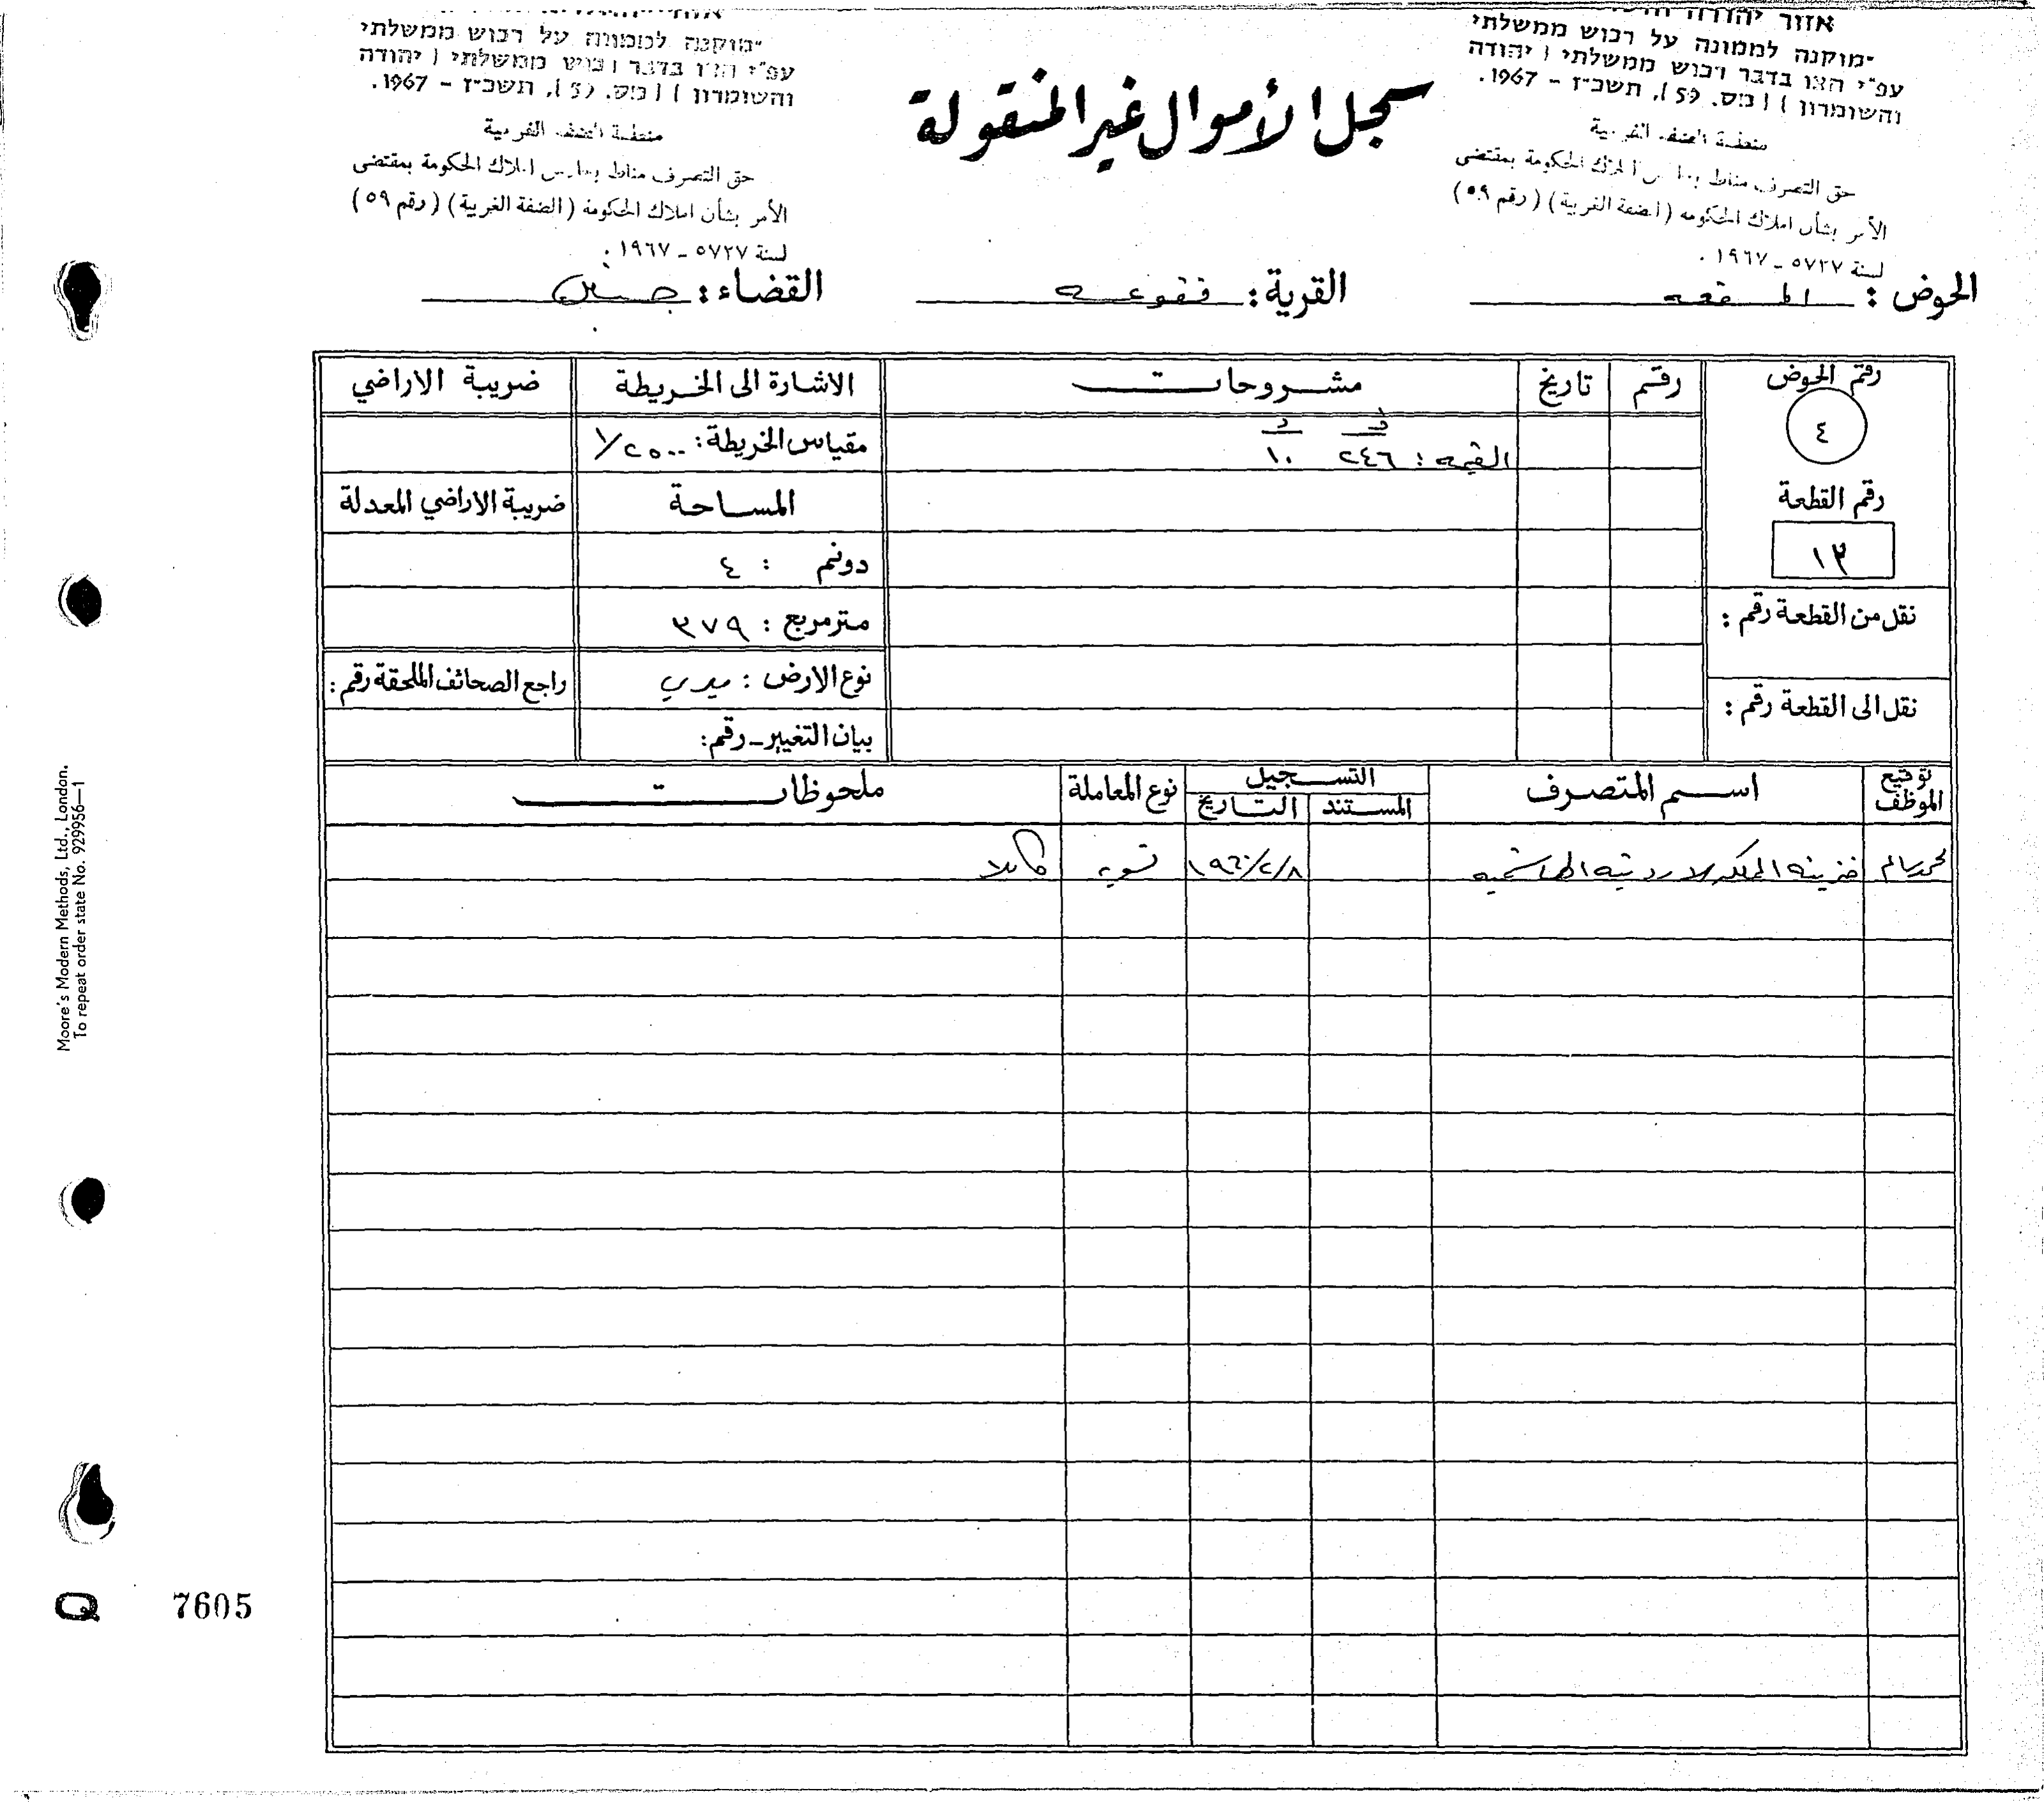 אזור יהודה
"מוקנה לממונה על רכוש ממשלתי
עפ"י הצו בדבר רכוש ממשלתי (יהודה
והשומרון) (מס. 59), תשכ"ז - 1967.
منطقة الضفة الغربية
حق التصرف مناط بحارس املاك الحكومة بمقتضى
الأمر بشأن املاك الحكومة (الضفة الغربية) (رقم ٥٩)
لسنة ٥٧٢٧ - ١٩٦٧ .
"מוקנה לממונה על רכוש ממשלתי
עפ"י הצו בדבר רכוש ממשלתי (יהודה
והשומרון) (מס. 59), תשכ"ז - 1967.
منطقة الضفة الغربية
حق التصرف مناط بحارس املاك الحكومة بمقتضى
الأمر بشأن املاك الحكومة (الضفة الغربية) (رقم ٥٩)
لسنة ٥٧٢٧ - ١٩٦٧ .
سجل الأموال غير المنقولة
الحوض : القرية : فقوعه القضاء : جنين
رقم الحوض رقم تاريخ مشروحات الاشارة الى الخريطة ضريبة الاراضي
٤ القيمه : ٢٤٦ ١٠ مقياس الخريطة : ١/٢٥٠٠
رقم القطعة المساحة ضريبة الاراضي المعدلة
١٣ دونم : ٤
نقل من القطعة رقم : متر مربع : ٣٧٩
نوع الارض : ميري راجع الصحائف الملحقة رقم :
نقل الى القطعة رقم : بيان التغيير - رقم :
توقيع الموظف اسم المتصرف التسجيل نوع المعاملة ملحوظات
المستند التاريخ
خزينة المملكه الاردنيه الهاشميه ١٩٦٠/٢/٨ تسويه كاملا
Moore's Modern Methods, Ltd., London.
To repeat order state No. 929956—1
Q 7605